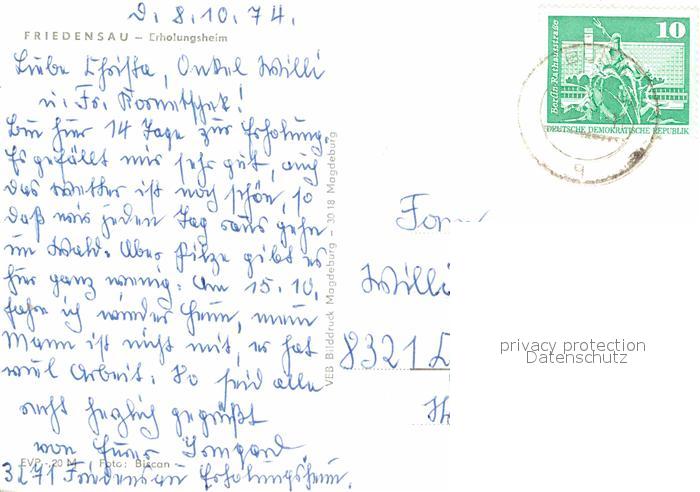 D. 8.10.74.
FRIEDENSAU – Erholungsheim
Liebe Christa, Onkel Willi
u. Fr.
Bin hier 14 Tage zur Erholung.
Es gefällt mir sehr gut, auch
das Wetter ist noch schön, so
daß wir jeden Tag raus gehn
im Wald. Aber Pilze gibt es
hier ganz wenig. Am 15.10.
fahre ich wieder heim, mein
Mann ist nicht mit, er hat
viel Arbeit. So seid alle
recht herzlich gegrüßt
von Eurer Irmgard
EVP -.20 M Foto: Biscan
3271 Friedensau Erholungsheim.
VEB Bilddruck Magdeburg – 3018 Magdeburg
10
Berlin-Rathausstraße
DEUTSCHE DEMOKRATISCHE REPUBLIK
9
Fam
Willi
8321
privacy protection
Datenschutz